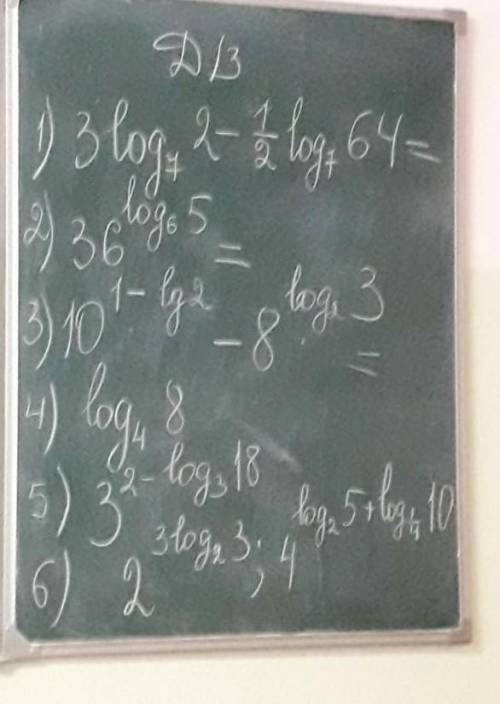 Д/З
1) 3 log₇ 2 - 1/2 log₇ 64 =
2) 36^(log₆ 5) =
3) 10^(1 - lg 2) - 8^(log₂ 3) =
4) log₄ 8
5) 3^(2 - log₃ 18)
6) 2^(3 log₂ 3); 4^(log₂ 5 + log₄ 10)